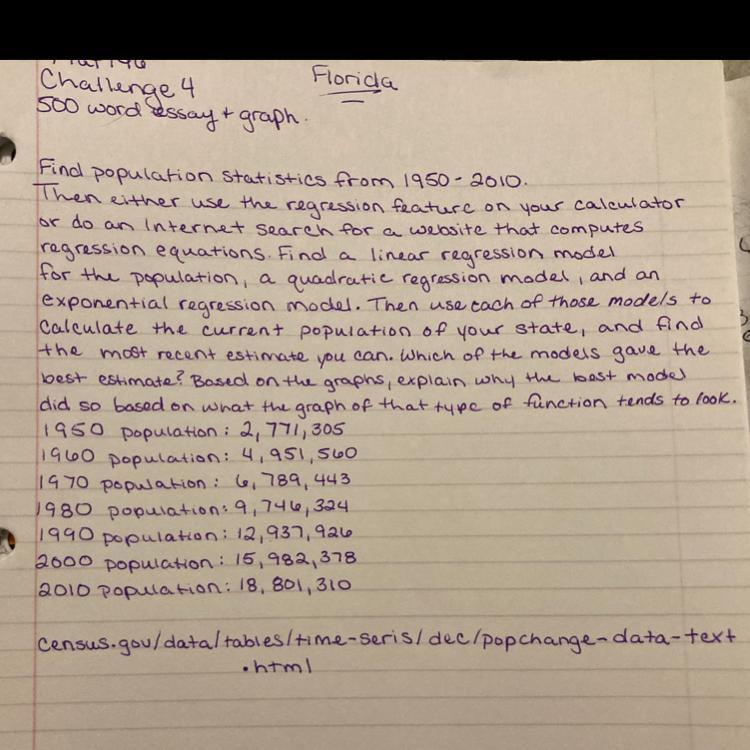 Challenge 4 Florida
500 word essay + graph.
Find population statistics from 1950 - 2010.
Then either use the regression feature on your calculator
or do an Internet search for a website that computes
regression equations. Find a linear regression model
for the population, a quadratic regression model, and an
exponential regression model. Then use each of those models to
calculate the current population of your state, and find
the most recent estimate you can. Which of the models gave the
best estimate? Based on the graphs, explain why the best model
did so based on what the graph of that type of function tends to look.
1950 population: 2,771,305
1960 population: 4,951,560
1970 population: 6,789,443
1980 population: 9,746,324
1990 population: 12,937,926
2000 population: 15,982,378
2010 population: 18,801,310
census.gov/data/tables/time-seris/dec/popchange-data-text
.html